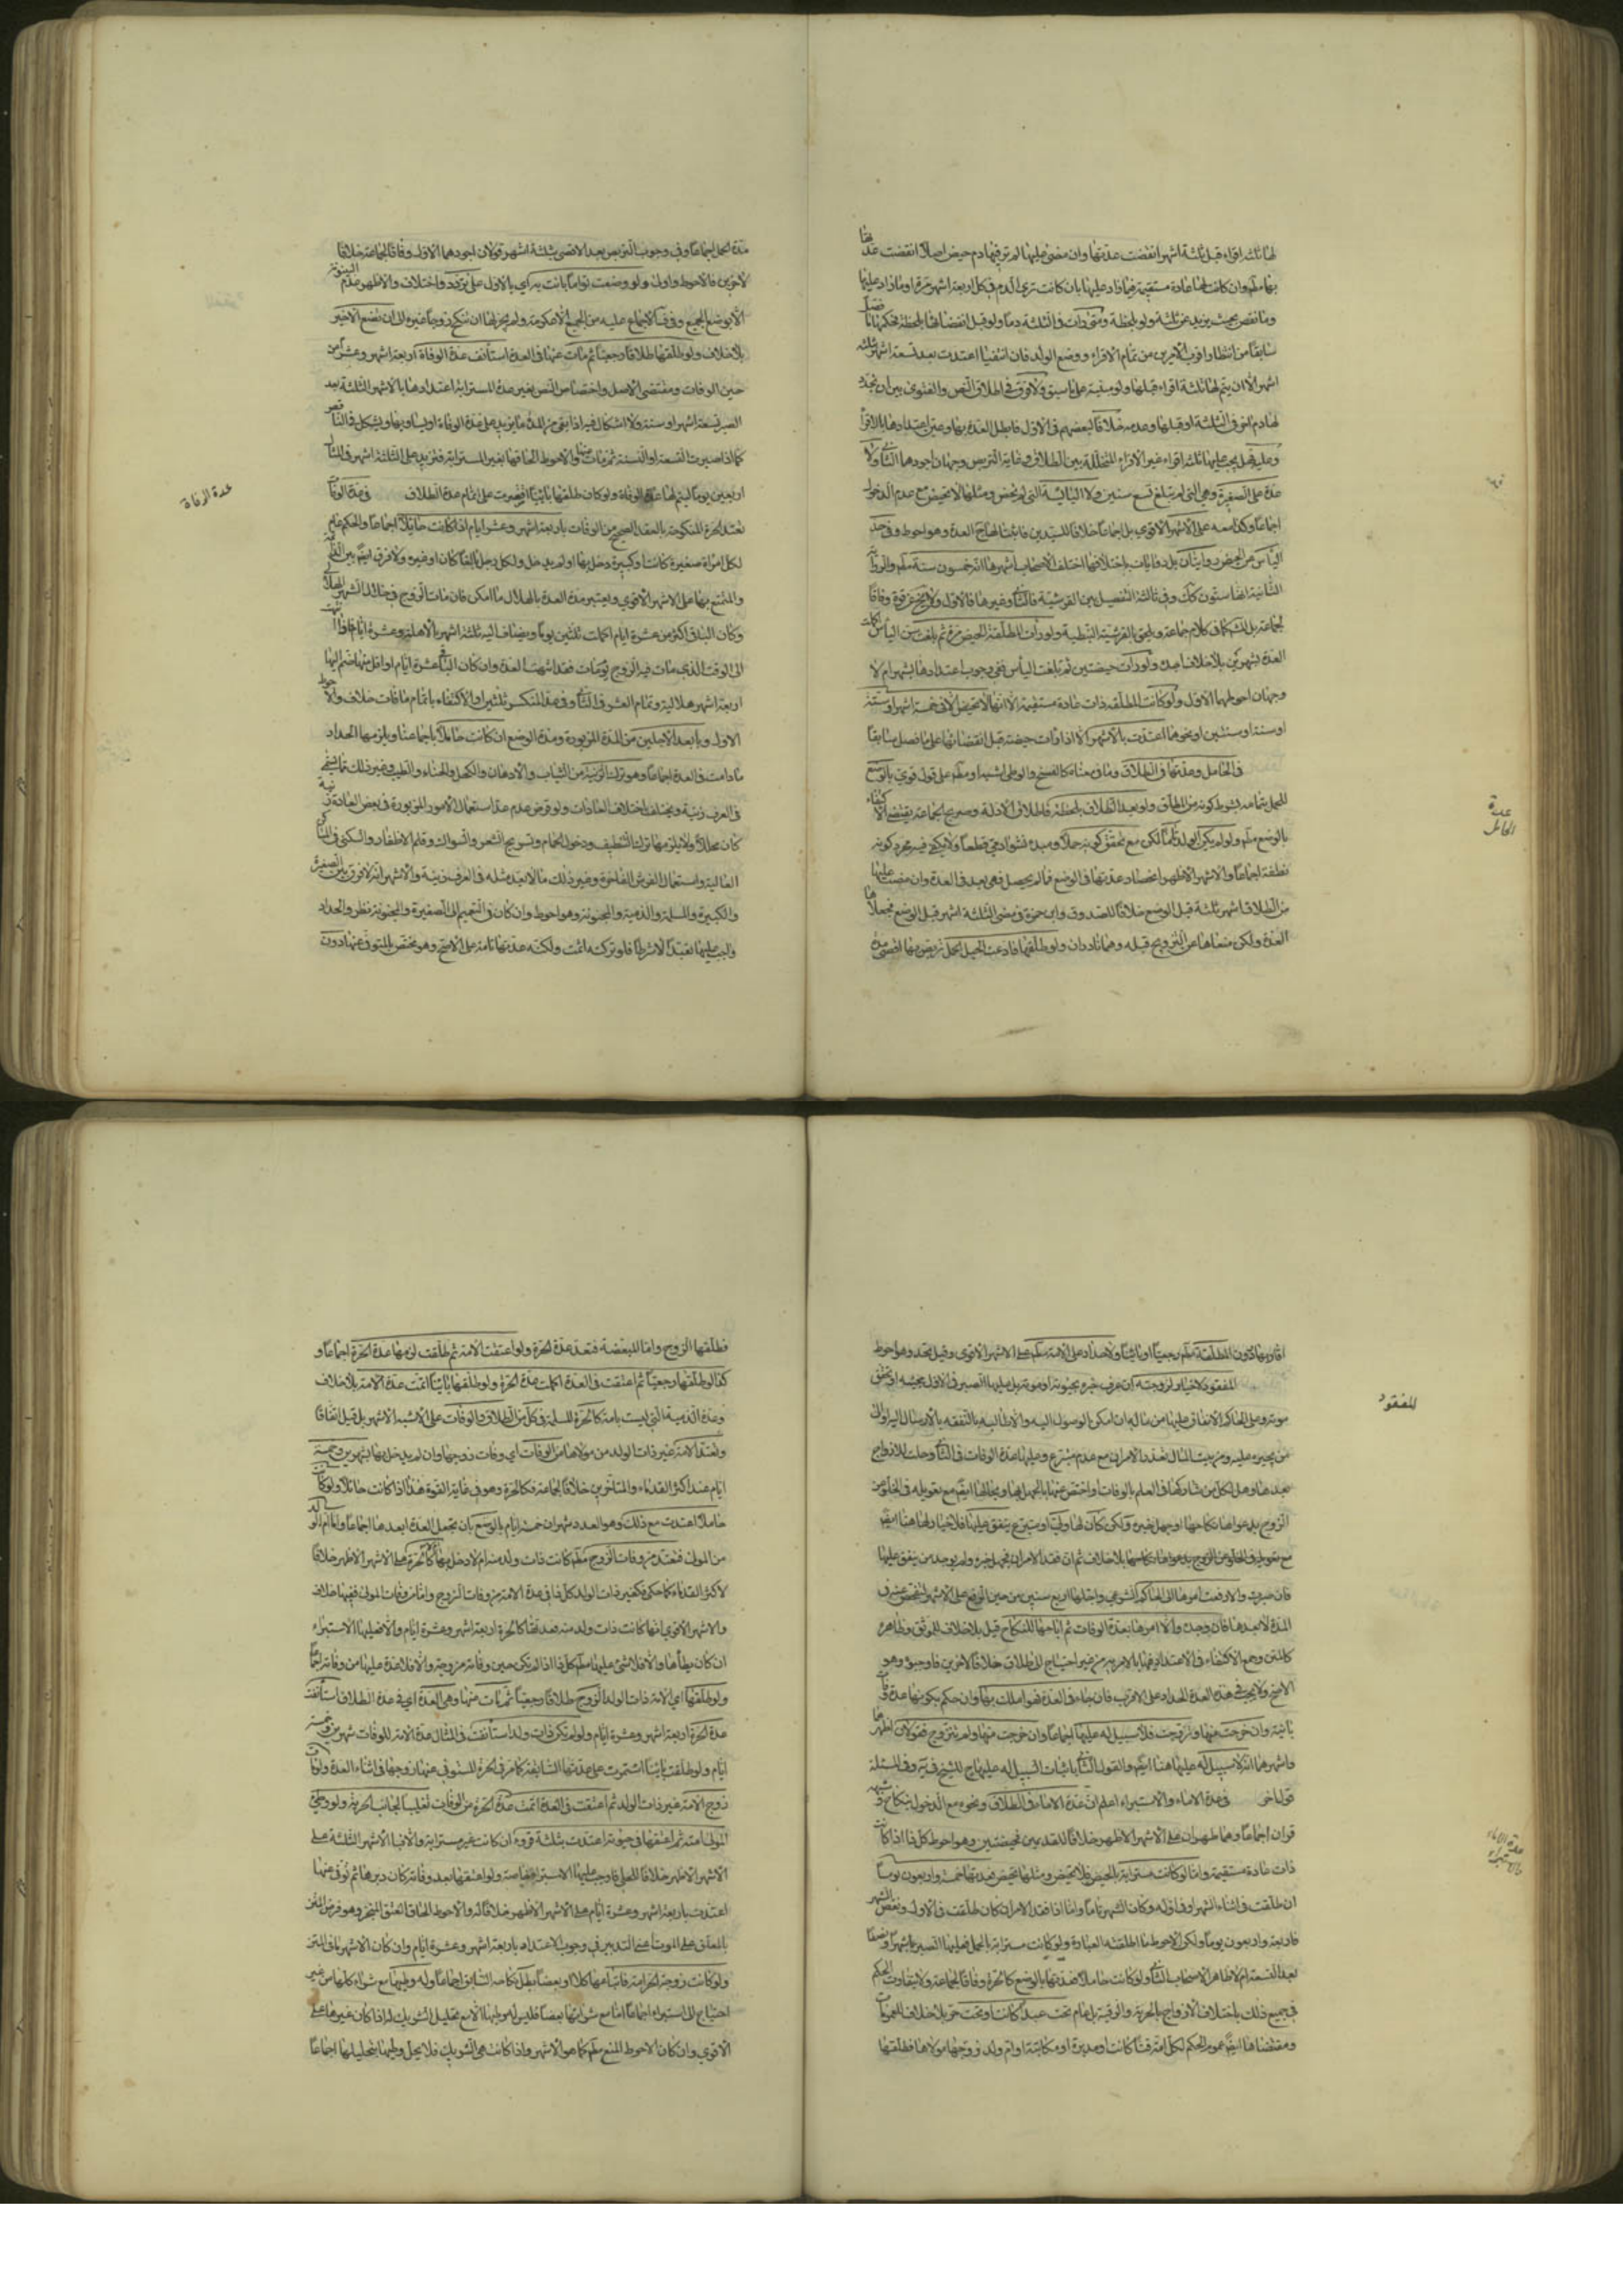 لها ثلثة اقراء قبل ثلثة اشهر انقضت عدتها وان مضى عليها لم تر فيها دم حيض اصلا انقضت عدتها
بها مطلقا وان كانت لها عادة مستقيمة فيما زاد عليها بان كانت ترى الدم في كل اربعة اشهر مرة او ما زاد عليها
وما نقص بحيث يزيد عن ثلثة ولو لحظة ومتى رات في الثلثة دما ولو قبل انقضائها بلحظة فحكمها ما فصل
سابقا من انتظار اقرب الامرين من تمام الاقراء ووضع الولد فان انتفيا اعتدت بعد تسعة اشهر بثلثة
اشهر الا ان يتم لها ثلثة اقراء قبلها ولو مبنية على ما سبق ولا فرق في اطلاق النص والفتوى بين ان يتجدد
لها دم اخر في الثلثة او قبلها وعدمه خلافا لبعضهم في الاول فابطل العدة بها وعين اعتدادها بالاقراء
وعليه فهل يجب عليها ثلثة اقراء غير الاقراء المتخللة بين الطلاق وغاية التربص وجهان اجودهما الثاني ولا
عدة على الصغيرة وهي التي لم تبلغ تسع سنين ولا اليائسة التي لم تحض ومثلها لا تحيض مع عدم الدخول
اجماعا وكذا معه على الاشهر الاقوى بل اجماعا خلافا للسيدين فاثبتا لهما العدة وهو احوط وفي حد
الياس من الحيض روايتان بل روايات باختلافها اختلف الاصحاب اشهرها انه خمسون سنة مطلقا والرواية
الثانية انها ستون كك وفي ثالثة التفصيل بين القرشية فالثاني وغيرها فالاول ولا يخ عن قوة وفاقا
لجماعة بل للشيخ في كلام جماعة ويلحق بالقرشية النبطية ولو رات المطلقة الحيض مرة ثم بلغت سن الياس اكملت
العدة بشهرين بلا خلاف اجده ولو رات حيضتين ثم بلغت الياس ففي وجوب اعتدادها بشهر ام لا
وجهان احوطهما الاول ولو كانت المطلقة ذات عادة مستقيمة الا انها لا تحيض الا في خمسة اشهر او ستة
او سنة او سنتين او نحوها اعتدت بالاشهر الا اذا رات حيضة قبل انقضائها على ما فصل سابقا
في الحامل وعدتها في الطلاق وما في معناه كالفسخ والوطى لشبهة او مطلقا على قول قوى بالوضع
للحمل بتمامه بشرط كونه من المطلق ولو بعد الطلاق بلحظة لاطلاق الادلة وصريح الجماعة يقتضي الاكتفاء
بالوضع مطلقا ولو لم يكن الولد تاما لكن مع تحقق كونه حملا ومبدء نشو ادمي قطعا ولا يكفي فيه مجرد كونه
نطفة اجماعا والاشهر الاظهر انحصار عدتها في الوضع فما لم يحصل فهي بعد في العدة وان مضت عليها
من الطلاق اشهر ثلثة قبل الوضع خلافا للصدوق وابن حمزة في مضى الثلثة اشهر قبل الوضع فجعلاها
العدة ولكن منعاها عن التزويج قبله وهما نادران ولو طلقها فادعت الحبل لحمل تربص بها اقصى مدة
عدة الحامل
مدة الحمل اجماعا وفي وجوب التربص بعد الاقصى بثلثة اشهر قولان اجودهما الاول وفاقا لجماعة خلافا
لاخرين فالاحوط واولى ولو وضعت تواما بانت به راي بالاول على تردد واختلاف والاظهر عدم البينونة
الا بوضع الجميع وفي ف الاجماع عليه من الجميع الا عكرمة ولم يجز لها ان تنكح زوجا غيره الى ان تضع الاخير
بلا خلاف ولو طلقها طلاقا رجعيا ثم مات عنها في العدة استانف عدة الوفاة اربعة اشهر وعشرا من
حين الوفات ومقتضى الاصل واختصاص النص بغير عدة المسترابة اعتدادها بالاشهر الثلثة بعد
الصبر تسعة اشهر او سنة ولا اشكال فيه اذا بقى من المدة ما يزيد على عدة الوفاة او يساويها ويشكل في الناقص
كما اذا صبرت التسعة او السنة ثم مات والاحوط الحاقها بغير المسترابة فتزيد على الثلثة اشهر في المثال
اربعين يوما ليتم لها عدة الوفاة ولو كان طلقها بائنا اقتصرت على اتمام عدة الطلاق في عدة الوفاة
تعتد الحرة المنكوحة بالعقد الصحيح من الوفات باربعة اشهر وعشر ايام اذا كانت حايلا اجماعا والحكم عام
لكل امراة صغيرة كانت او كبيرة دخل بها او لم يدخل ولكل رجل بالغا كان او غيره ولا فرق ايضا بين الدائمة
والمتمتع بها على الاشهر الاقوى ويعتبر مدة العدة بالهلال ما امكن فان مات الزوج في خلال الشهر الهلالي
وكان الباقي اكثر من عشرة ايام اكملت ثلثين يوما ويضاف اليه ثلثة اشهر بالاهلة وعشرة ايام فاذا انتهت
الى الوقت الذي مات فيه الزوج يوم مات فقد انتهت العدة وان كان الباقي عشرة ايام او اقل منها ضم اليها
اربعة اشهر هلالية وتمام العشر في الثاني وفي عد المنكسر ثلثين او الاكتفاء باتمام ما فات خلاف والاحوط
الاول وبابعد الاجلين من المدة المزبورة ومدة الوضع ان كانت حاملا باجماعنا ويلزمها الحداد
ما دامت في العدة اجماعا وهو ترك الزينة من الثياب والادهان والكحل والحناء والطيب وغير ذلك مما يتبع
في العرف زينة ويختلف باختلاف العادات ولو فرض عدم عد استعمال الامور المزبورة في بعض العادة زينة
كان محللا ولا يلزمها ترك التنظيف ودخول الحمام وتسريح الشعر والسواك وقلم الاظفار والسكنى في المساكن
العالية واستعمال الفرش الفاخرة وغير ذلك مما لا يعد مثله في العرف زينة والاشهر انه لا فرق بين الصغيرة
والكبيرة والمسلمة والذمية والمجنونة وهو احوط وان كان في التعميم الى الصغيرة والمجنونة نظر والحداد
واجب عليها تعبدا لا شرطا فلو تركته اثمت ولكنه عدتها تامة على الاصح وهو مختص بالمتوفى عنها دون
عدة الوفاة
اقاربها ودون المطلقة مطلقا رجعيا او بائنا ولا حداد على الامة مطلقا على الاشهر الاقوى وقيل تحد وهو احوط
المفقود لا خيار لزوجته ان عرف خبره بحيوته او موته بل عليها الصبر في الاول بمجيئه او تحقق
موته وعلى الحاكم الانفاق عليها من ماله ان امكن الوصول اليه والا طالبه بالنفقة بالارسال اليه او الى
من يجبره عليه ومن بيت المال تعذر الامران مع عدم متبرع وعليها عدة الوفات في الثاني وحلت للازواج
بعدها وهل لكل من شاركها في العلم بالوفات او اختص عنها بالجهل لها ويحالها ايضا مع تعويله في الخلو من
الزوج بدعواها نكاحها او جهل خبره ولكن كان لها ولي او متبرع ينفق عليها فلا خيار لها هنا ايضا
مع تعويله في الخلو عن الزوج بدعواها نكاحها بلا خلاف ثم ان فقد الامران فجهل خبره ولم يوجد من ينفق عليها
فان صبرت والا رفعت امرها الى الحاكم الشرعي واجلها اربع سنين من حين الرفع على الاشهر ليفحص عنه في
المدة لا بعدها فان وجد والا امرها بعدة الوفات ثم اباحها للنكاح قبل بلا خلاف للموثق وظاهره
كالمتن وجمع الاكتفاء في الاعتداد فيها بالامر به من غير احتياج الى طلاق خلافا لاخرين فاوجبوه وهو
الاصح ولا يجب في هذه العدة الحداد على الاقرب فان جاء في العدة فهو املك بها وان حكم بكونها عدة وفات
بائنة وان خرجت منها وتزوجت فلا سبيل له عليها اجماعا وان خرجت منها ولم تتزوج فقولان اظهرها
واشهرهما انه لا سبيل له عليها هنا ايضا والقول الثاني باثبات السبيل له عليها للشيخ في ية وفي المسئلة
قول اخر في عدة الاماء والاستبراء اعلم ان عدة الاماء في الطلاق ونحوه مع الدخول بنكاح وشبهه
قران اجماعا وهما طهران على الاشهر الاظهر خلافا للقديمين فحيضتين وهو احوط كل ذا اذا كانت
ذات عادة مستقيمة واما لو كانت مسترابة بالحيض فلا تحيض ومثلها تحيض فعدتها خمسة واربعون يوما
ان طلقت في اثناء الشهر او في اوله وكان الشهر تاما واما اذا فقد الامران كان طلقت في الاول ونقص الشهر
فاربعة واربعون يوما ولكن الاحوط ما اطلقته العبارة ولو كانت مسترابة بالحمل فعليها الصبر باشهر او نصفا
بعد التسعة ام لا ظاهر الاصحاب الثاني ولو كانت حاملا فعدتها بالوضع كالحرة وفاقا لجماعة ولا يتفاوت الحكم
في جميع ذلك باختلاف الازواج بالحرية والرقية بل عام تحت عبد كانت او تحت حر بلا خلاف للعمومات
ومقتضاها ايضا عموم الحكم لكل امة قنا كانت او مدبرة او مكاتبة او ام ولد زوجها مولاها فطلقها
المفقود
عدة الاماء والاستبراء
فطلقها الزوج واما المبعضة فتعتد عدة الحرة ولو اعتقت الامة ثم طلقت لزمها عدة الحرة اجماعا و
كذا لو طلقها رجعيا ثم اعتقت في العدة اكملت عدة الحرة ولو طلقها بائنا اتمت عدة الامة بلا خلاف
وعدة الذمية التي ليست بامة كالحرة المسلمة في كل من الطلاق والوفات على الاشبه الاشهر بل قيل اتفاقا
وتعتد الامة غير ذات الولد من مولاها من الوفات اي وفات زوجها وان لم يدخل بها بشهرين وخمسة
ايام عند اكثر القدماء والمتاخرين خلافا لجماعة فكالحرة وهو في غاية القوة هذا اذا كانت حائلا ولو كانت
حاملا اعتدت مع ذلك وهو العدد شهران خمسة ايام بالوضع بان تجعل العدة ابعدها اجماعا واما ام الولد
من المولى فتعتد من وفات الزوج مطلقا كانت ذات ولد منه ام لا دخل بها كالحرة على الاشهر الاظهر خلافا
لاكثر القدماء كما حكى فكغير ذات الولد كل ذا في عدة الامة من وفات الزوج واما من وفات المولى ففيها خلاف
والاشهر الاقوى انها كانت ذات ولد منه فعدتها كالحرة اربعة اشهر وعشرة ايام والا فعليها الاستبراء
ان كان يطأها والا فلا شئ عليها مطلقا كل ذا اذا لم تكن حين وفاته مزوجة والا فلا عدة عليها من وفاته اجماعا
ولو طلقها اي الامة ذات الولد الزوج طلاقا رجعيا ثم مات عنها وهي العدة اي في عدة الطلاق استانفت
عدة الحرة اربعة اشهر وعشرة ايام ولو لم تكن ذات ولد استانفت في المثال عدة الامة للوفات شهرين وخمسة
ايام ولو طلقت بائنا استمرت على عدتها السابقة كما مر في الحرة المتوفى عنها زوجها في اثناء العدة ولو مات
زوج الامة غير ذات الولد ثم اعتقت في العدة اتمت عدة الحرة من الوفات تغليبا لجانب الحرية ولو وطئ
المولى امته ثم اعتقها في حيوته اعتدت بثلثة قروء ان كانت غير مسترابة والا فبالاشهر الثلثة على
الاشهر الاظهر خلافا للحلي فاوجب عليها الاستبراء خاصة ولو اعتقها بعد وفاته كان دبرها ثم توفى عنها
اعتدت باربعة اشهر وعشرة ايام على الاشهر الاظهر خلافا له والاحوط الحاق العتق المنجز وهو فرض المتن
بالمعلق على الموت اعني التدبير في وجوب الاعتداد باربعة اشهر وعشرة ايام وان كان الاشهر ما في المتن
ولو كانت زوجة الحر امة فابتاعها كلا او بعضا بطل نكاحه السابق اجماعا وله وطيها مع شراء كلها من غير
احتياج الى استبراء اجماعا اما مع شرائها بعضا فليس له وطيها الا مع تحليل الشريك له اذا كان غيرها على
الاقوى وان كان الاحوط المنع مطلقا كما هو الاشهر واذا كانت هي الشريك فلا يحل وطيها بتحليلها اجماعا